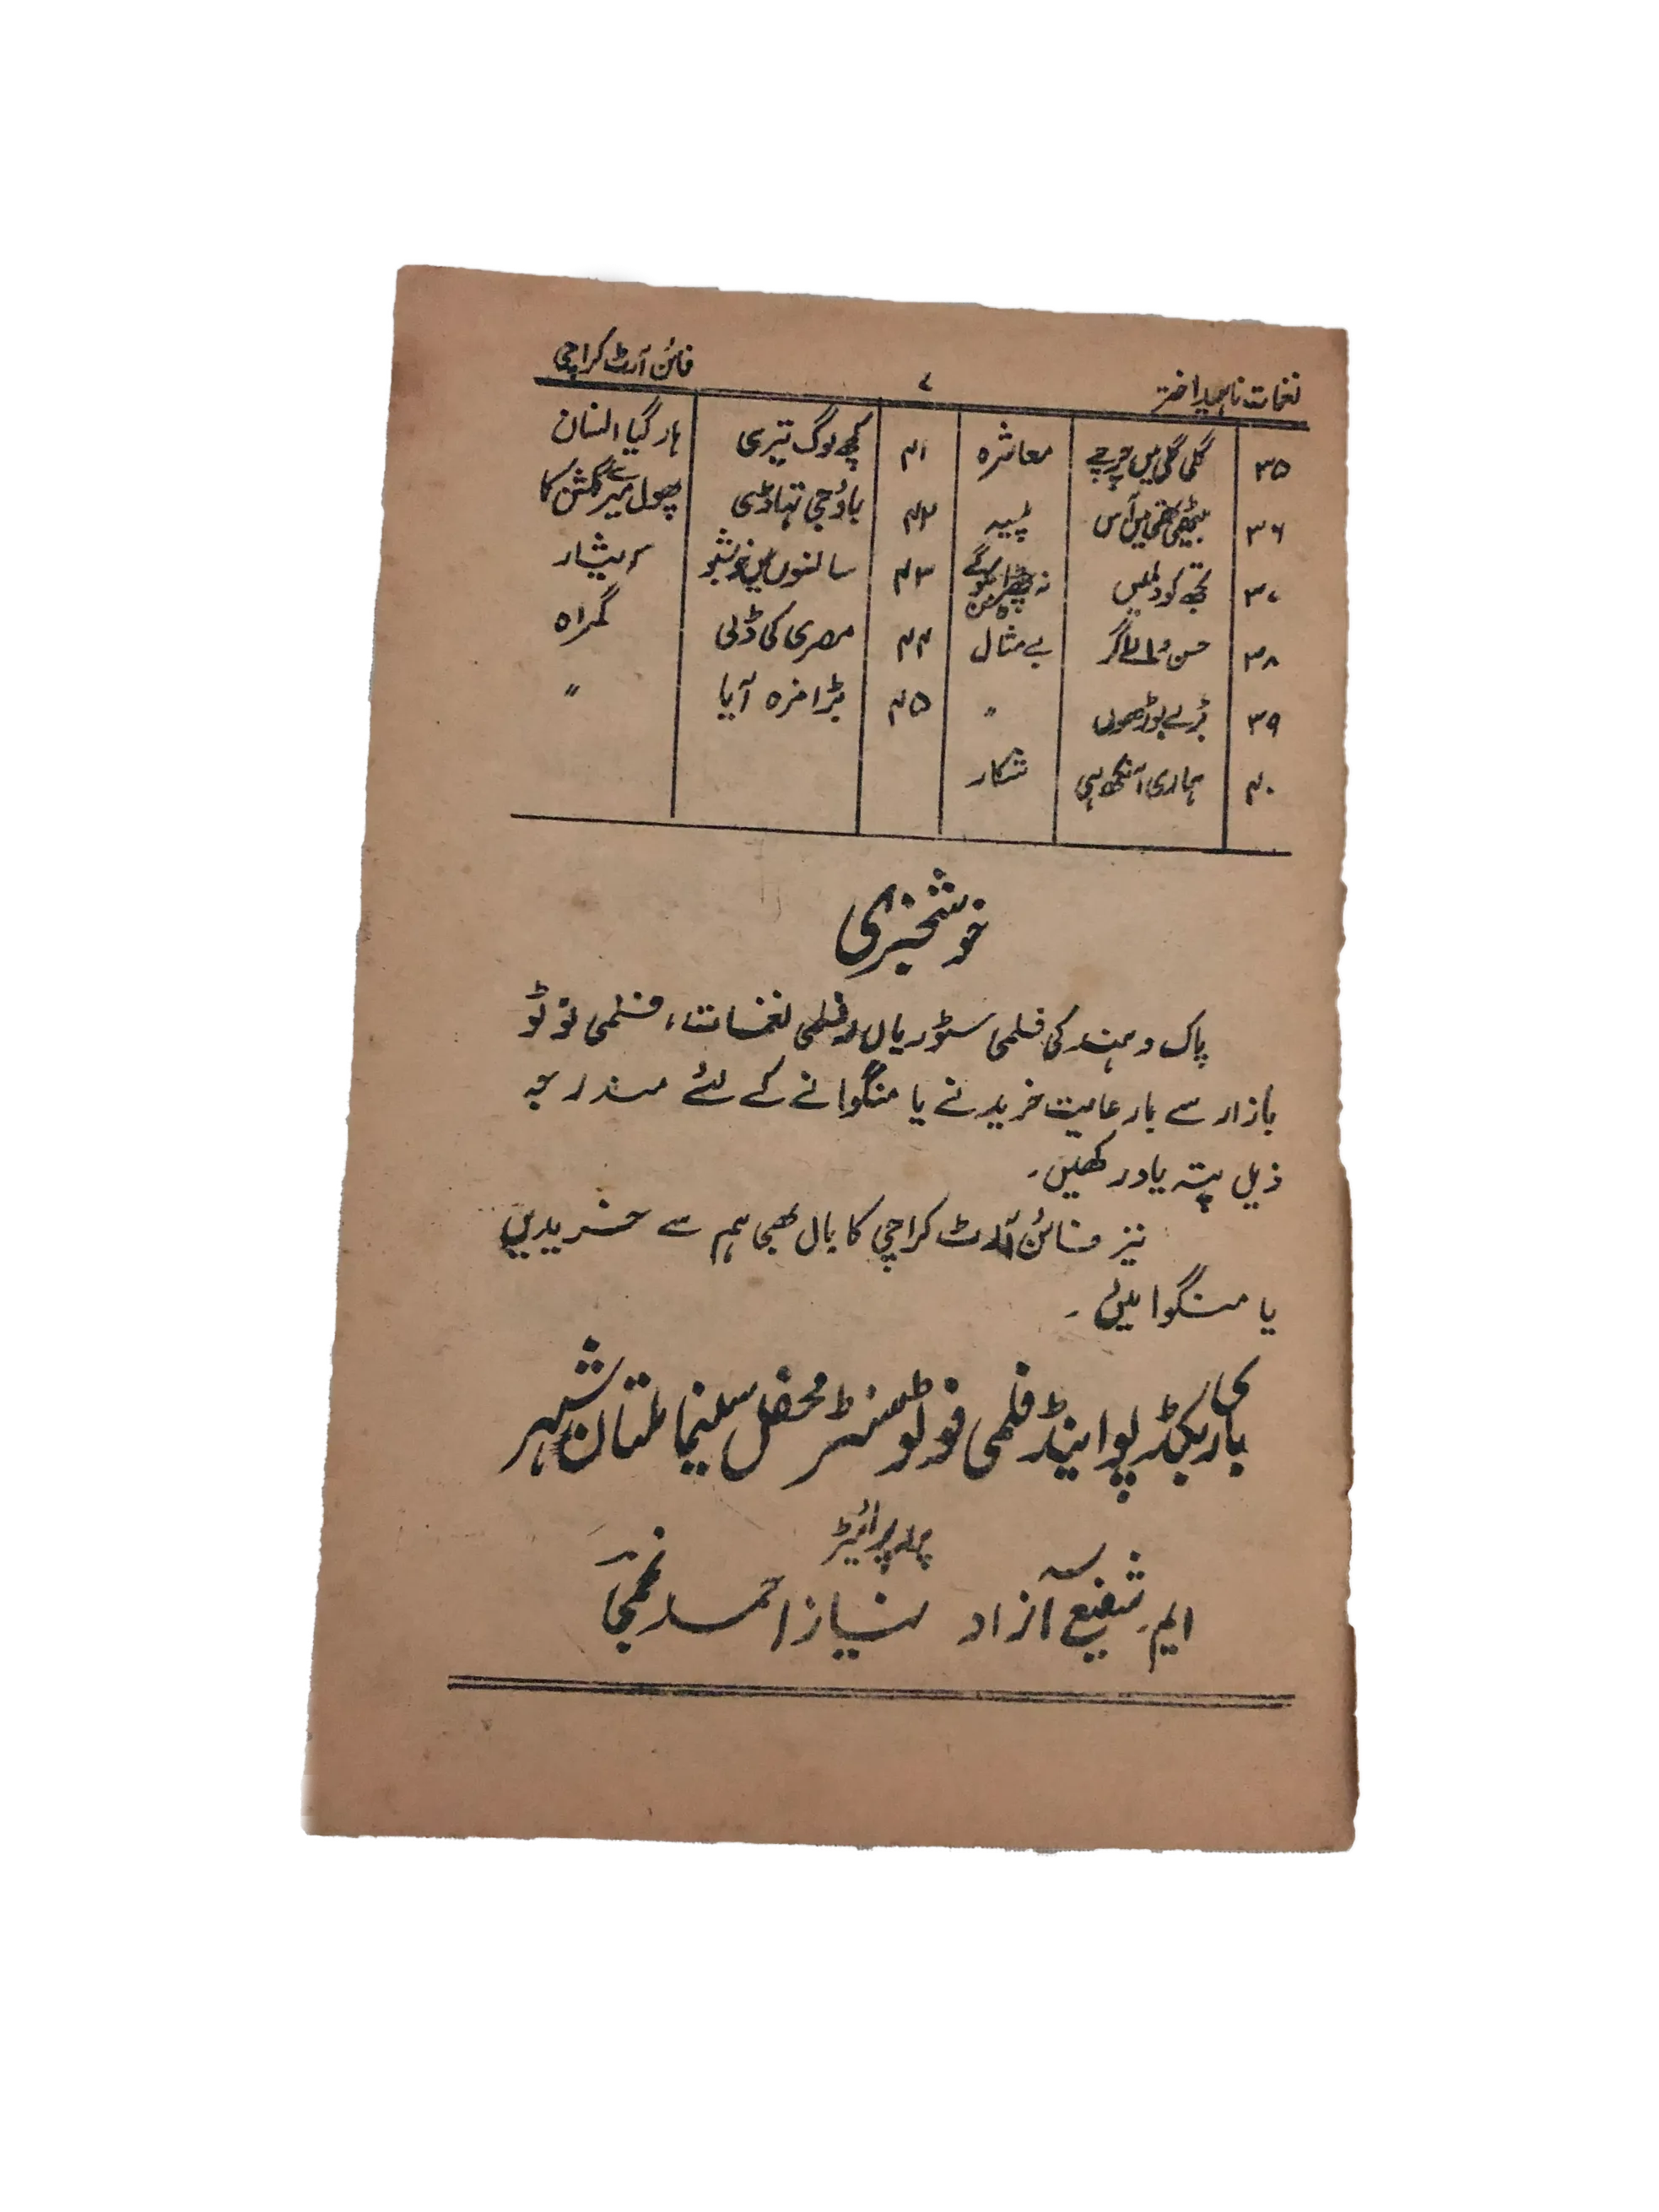 نغمات ناہید اختر ۷ فائن آرٹ کراچی
۳۵ گلی گلی میں چرچے معاشرہ ۴۱ کچھ لوگ تیری ہار گیا انسان
۳۶ بیٹھی تھی میں آس پیسہ ۴۲ باؤجی تہاڈی پھول میرے گلشن کا
۳۷ تجھ کو دیکھیں نہ چھڑا سکو گے ۴۳ سانسوں میں خوشبو ایثار
۳۸ حسن والے اگر بے مثال ۴۴ مصری کی ڈلی گمراہ
۳۹ بڑے بوڑھوں " ۴۵ بڑا مزہ آیا "
۴۰ ہماری آنکھ ہی شکار
خوشخبری
پاک و ہند کی فلمی سٹوریاں، فلمی نغمات، فلمی فوٹو
بازار سے بارعایت خریدنے یا منگوانے کے لئے مندرجہ
ذیل پتہ یاد رکھیں۔
نیز فائن آرٹ کراچی کا مال بھی ہم سے خریدیں
یا منگوائیں۔
بکڈپو اینڈ فلمی فوٹو سنٹر محفل سینما ملتان شہر
پروپرائیٹر
ایم شفیع آزاد نیاز احمد نجمی